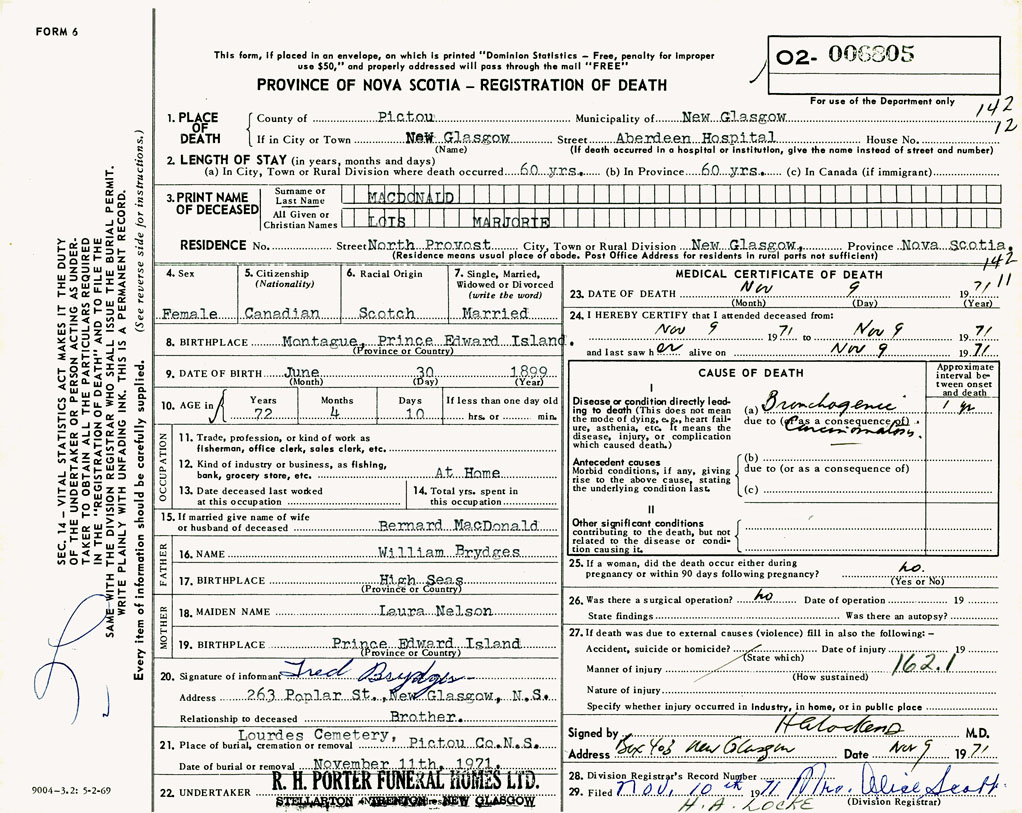 FORM 6
This form, if placed in an envelope, on which is printed "Dominion Statistics — Free, penalty for improper
use $50," and properly addressed will pass through the mail "FREE"
PROVINCE OF NOVA SCOTIA — REGISTRATION OF DEATH
O2- 006805
For use of the Department only
142
12
1. PLACE OF DEATH
County of Pictou Municipality of New Glasgow
If in City or Town New Glasgow Street Aberdeen Hospital House No.
(Name) (If death occurred in a hospital or institution, give the name instead of street and number)
2. LENGTH OF STAY (in years, months and days)
(a) In City, Town or Rural Division where death occurred 60 yrs. (b) In Province 60 yrs. (c) In Canada (if immigrant)
3. PRINT NAME OF DECEASED
Surname or Last Name MACDONALD
All Given or Christian Names LOIS MARJORIE
RESIDENCE No. Street North Provost City, Town or Rural Division New Glasgow, Province Nova Scotia.
(Residence means usual place of abode. Post Office Address for residents in rural parts not sufficient)
142
11
4. Sex
Female
5. Citizenship
(Nationality)
Canadian
6. Racial Origin
Scotch
7. Single, Married,
Widowed or Divorced
(write the word)
Married
8. BIRTHPLACE Montague, Prince Edward Island.
(Province or Country)
9. DATE OF BIRTH June 30 1899
(Month) (Day) (Year)
10. AGE in
Years Months Days If less than one day old
72 4 10 hrs. or min.
OCCUPATION
11. Trade, profession, or kind of work as
fisherman, office clerk, sales clerk, etc.
12. Kind of industry or business, as fishing,
bank, grocery store, etc. At Home
13. Date deceased last worked
at this occupation
14. Total yrs. spent in
this occupation
15. If married give name of wife
or husband of deceased Bernard MacDonald
FATHER
16. NAME William Brydges
17. BIRTHPLACE High Seas
(Province or Country)
MOTHER
18. MAIDEN NAME Laura Nelson
19. BIRTHPLACE Prince Edward Island
(Province or Country)
20. Signature of informant Fred Brydges
Address 263 Poplar St., New Glasgow, N.S.
Relationship to deceased Brother.
21. Place of burial, cremation or removal Lourdes Cemetery, Pictou Co.N.S.
Date of burial or removal November 11th, 1971.
22. UNDERTAKER R. H. PORTER FUNERAL HOMES LTD.
STELLARTON TRENTON NEW GLASGOW
MEDICAL CERTIFICATE OF DEATH
23. DATE OF DEATH Nov 9 1971
(Month) (Day) (Year)
24. I HEREBY CERTIFY that I attended deceased from:
Nov 9 1971 to Nov 9 1971
and last saw her alive on Nov 9 1971
CAUSE OF DEATH
Approximate
interval be-
tween onset
and death
I
Disease or condition directly lead-
ing to death (This does not mean
the mode of dying, e.g., heart fail-
ure, asthenia, etc. It means the
disease, injury, or complication
which caused death.)
(a) Bronchogenic 1 yr
due to (or as a consequence of)
Carcinomatosis.
Antecedent causes
Morbid conditions, if any, giving
rise to the above cause, stating
the underlying condition last.
(b)
due to (or as a consequence of)
(c)
II
Other significant conditions
contributing to the death, but not
related to the disease or condi-
tion causing it.
25. If a woman, did the death occur either during
pregnancy or within 90 days following pregnancy? no.
(Yes or No)
26. Was there a surgical operation? no Date of operation 19
State findings Was there an autopsy?
27. If death was due to external causes (violence) fill in also the following: —
Accident, suicide or homicide? Date of injury 19
(State which)
Manner of injury 162.1
(How sustained)
Nature of injury
Specify whether injury occurred in industry, in home, or in public place
Signed by M.D.
Address Box 403 New Glasgow Date Nov 9 1971
28. Division Registrar's Record Number
29. Filed Nov. 10th 1971 Mrs. Alice Scott
(Division Registrar)
H. A. LOCKE
SEC. 14 — VITAL STATISTICS ACT MAKES IT THE DUTY
OF THE UNDERTAKER OR PERSON ACTING AS UNDER-
TAKER TO OBTAIN ALL THE PARTICULARS REQUIRED
IN THE "REGISTRATION OF DEATH" AND TO FILE THE
SAME WITH THE DIVISION REGISTRAR WHO SHALL ISSUE THE BURIAL PERMIT.
WRITE PLAINLY WITH UNFADING INK. THIS IS A PERMANENT RECORD.
Every item of information should be carefully supplied. (See reverse side for instructions.)
9004-3.2: 5-2-69